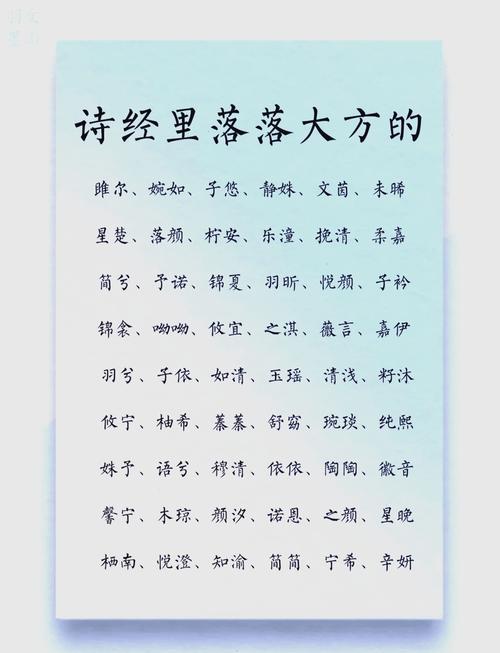 诗经里落落大方的
雎尔、婉如、子悠、静姝、文茵、未晞
星楚、落颜、柠安、乐潼、挽清、柔嘉
简兮、予诺、锦夏、羽昕、悦颜、子衿
锦衾、呦呦、攸宜、之淇、薇言、嘉伊
羽兮、子依、如清、玉瑶、清浅、籽沐
攸宁、柚希、蓁蓁、舒窈、琬琰、纯熙
姝予、语兮、穆清、依依、陶陶、徽音
馨宁、木琼、颜汐、诺恩、之颜、星晚
栖南、悦澄、知渝、简简、宁希、辛妍